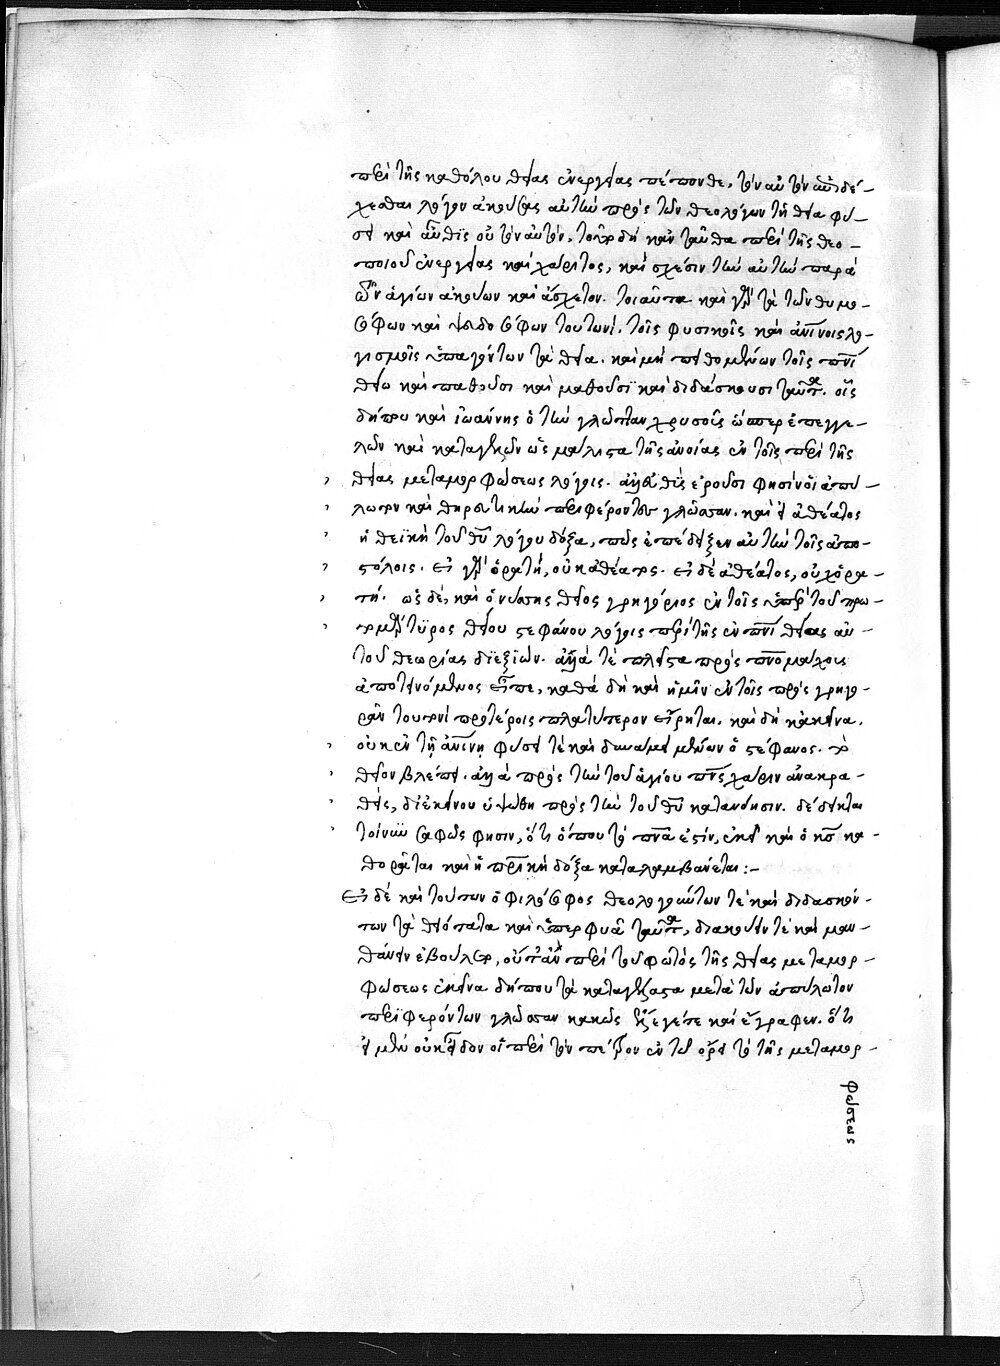 περὶ τῆς καθόλου θείας ἐνεργείας πέπονθε, τὸν αὐτὸν αὖθις δέ-
χεσθαι λόγον ἀκούσας αὐτὴν πρὸς τῶν θεολόγων τῇ θεία φύ-
σει καὶ αὖθις οὐ τὸν αὐτόν, τοῦτο δὴ κἀνταῦθα περὶ τῆς θεο-
ποιοῦ ἐνεργείας καὶ χάριτος, καὶ σχέσιν τὴν αὐτὴν παρὰ
τῶν ἁγίων ἀκούων καὶ ἄσχετον. τοιαῦτα καὶ γὰρ τὰ τῶν θυμο-
σόφων καὶ ψευδοσόφων τουτωνί, τοῖς φυσικοῖς καὶ ἀνθρωπίνοις λο-
γισμοῖς ὑπαγόντων τὰ θεῖα. καὶ μὴ πειθομένων τοῖς πνευματι
θείω καὶ παθοῦσι καὶ μαθοῦσι καὶ διδάσκουσι ταῦτα. οἷς
δήπου καὶ ἰωάννης ὁ τὴν γλῶτταν χρυσοῦς ὥσπερ ἐπεγγε-
λῶν καὶ καταγινώσκων ὡς μάλιστα τῆς ἀνοίας ἐν τοῖς περὶ τῆς
θείας μεταμορφώσεως λόγοις. ἀλλ' εὐθὺς ἐροῦσι φησὶν οἱ ἀπύ-
λωτον καὶ θηρευτικὴν περιφέροντες γλῶτταν. καὶ εἰ ἀθέατος
ἡ θεϊκὴ τοῦ θεοῦ λόγου δόξα, πῶς ἐπέδειξεν αὐτὴν τοῖς ἀπο-
στόλοις. εἰ γὰρ ὁρατή, οὐκ ἀθέατος. εἰ δὲ ἀθέατος, οὐχ ὁρα-
τή. ὡς δὲ, καὶ ὁ νύσσης θεῖος γρηγόριος ἐν τοῖς ὑπὲρ τοῦ πρω-
τομάρτυρος θείου στεφάνου λόγοις περὶ τῆς ἐν πνεύματι θείας αὐ-
τοῦ θεωρίας διεξιών. ἄλλά τε πλεῖστα πρὸς πνευματομάχους
ἀποτεινόμενος εἶπε, καθὰ δὴ καὶ ἡμῖν ἐν τοῖς πρὸς γρηγο-
ρᾶν τουτονὶ προτέροις πλατύτερον εἴρηται. καὶ δὴ κἀκεῖνα.
οὐκ ἐν τῇ ἀνθρωπίνῃ φύσει τὲ καὶ δυνάμει μένων ὁ στέφανος. τὸ
θεῖον βλέπει. ἀλλὰ πρὸς τὴν τοῦ ἁγίου πνεύματος χάριν ἀνακρα-
θείς, δι' ἐκείνου ὑψώθη πρὸς τὴν τοῦ θεοῦ κατανόησιν. δέδεικται
τοίνυν σαφῶς φησιν, ὅτι ὅπου τὸ πνεῦμα ἐστίν, ἐκεῖ καὶ ὁ υἱὸς κα-
θορᾶται καὶ ἡ πατρικὴ δόξα καταλαμβάνεται:-
Εἰ δὲ καὶ τούτων ὁ φιλόσοφος θεολογούντων τὲ καὶ διδασκόν-
των τὰ θειότατα καὶ ὑπερφυᾶ ταῦτα, διακούειν τὲ καὶ μαν-
θάνειν ἐβούλετο, οὔποτ' ἂν περὶ τοῦ φωτὸς τῆς θείας μεταμορ-
φώσεως ἐκεῖνα δήπου τὰ καταγέλαστα μετὰ τῶν ἀπύλωτον
περιφερόντων γλῶτταν κακῶς ἐξέχεέ τε καὶ ἔγραφεν. ὅτι
εἰ μὲν οὐκ εἶδον οἱ περὶ τὸν πέτρον ἐν τῷ ὄρει τὸ τῆς μεταμορ-
φώσεως